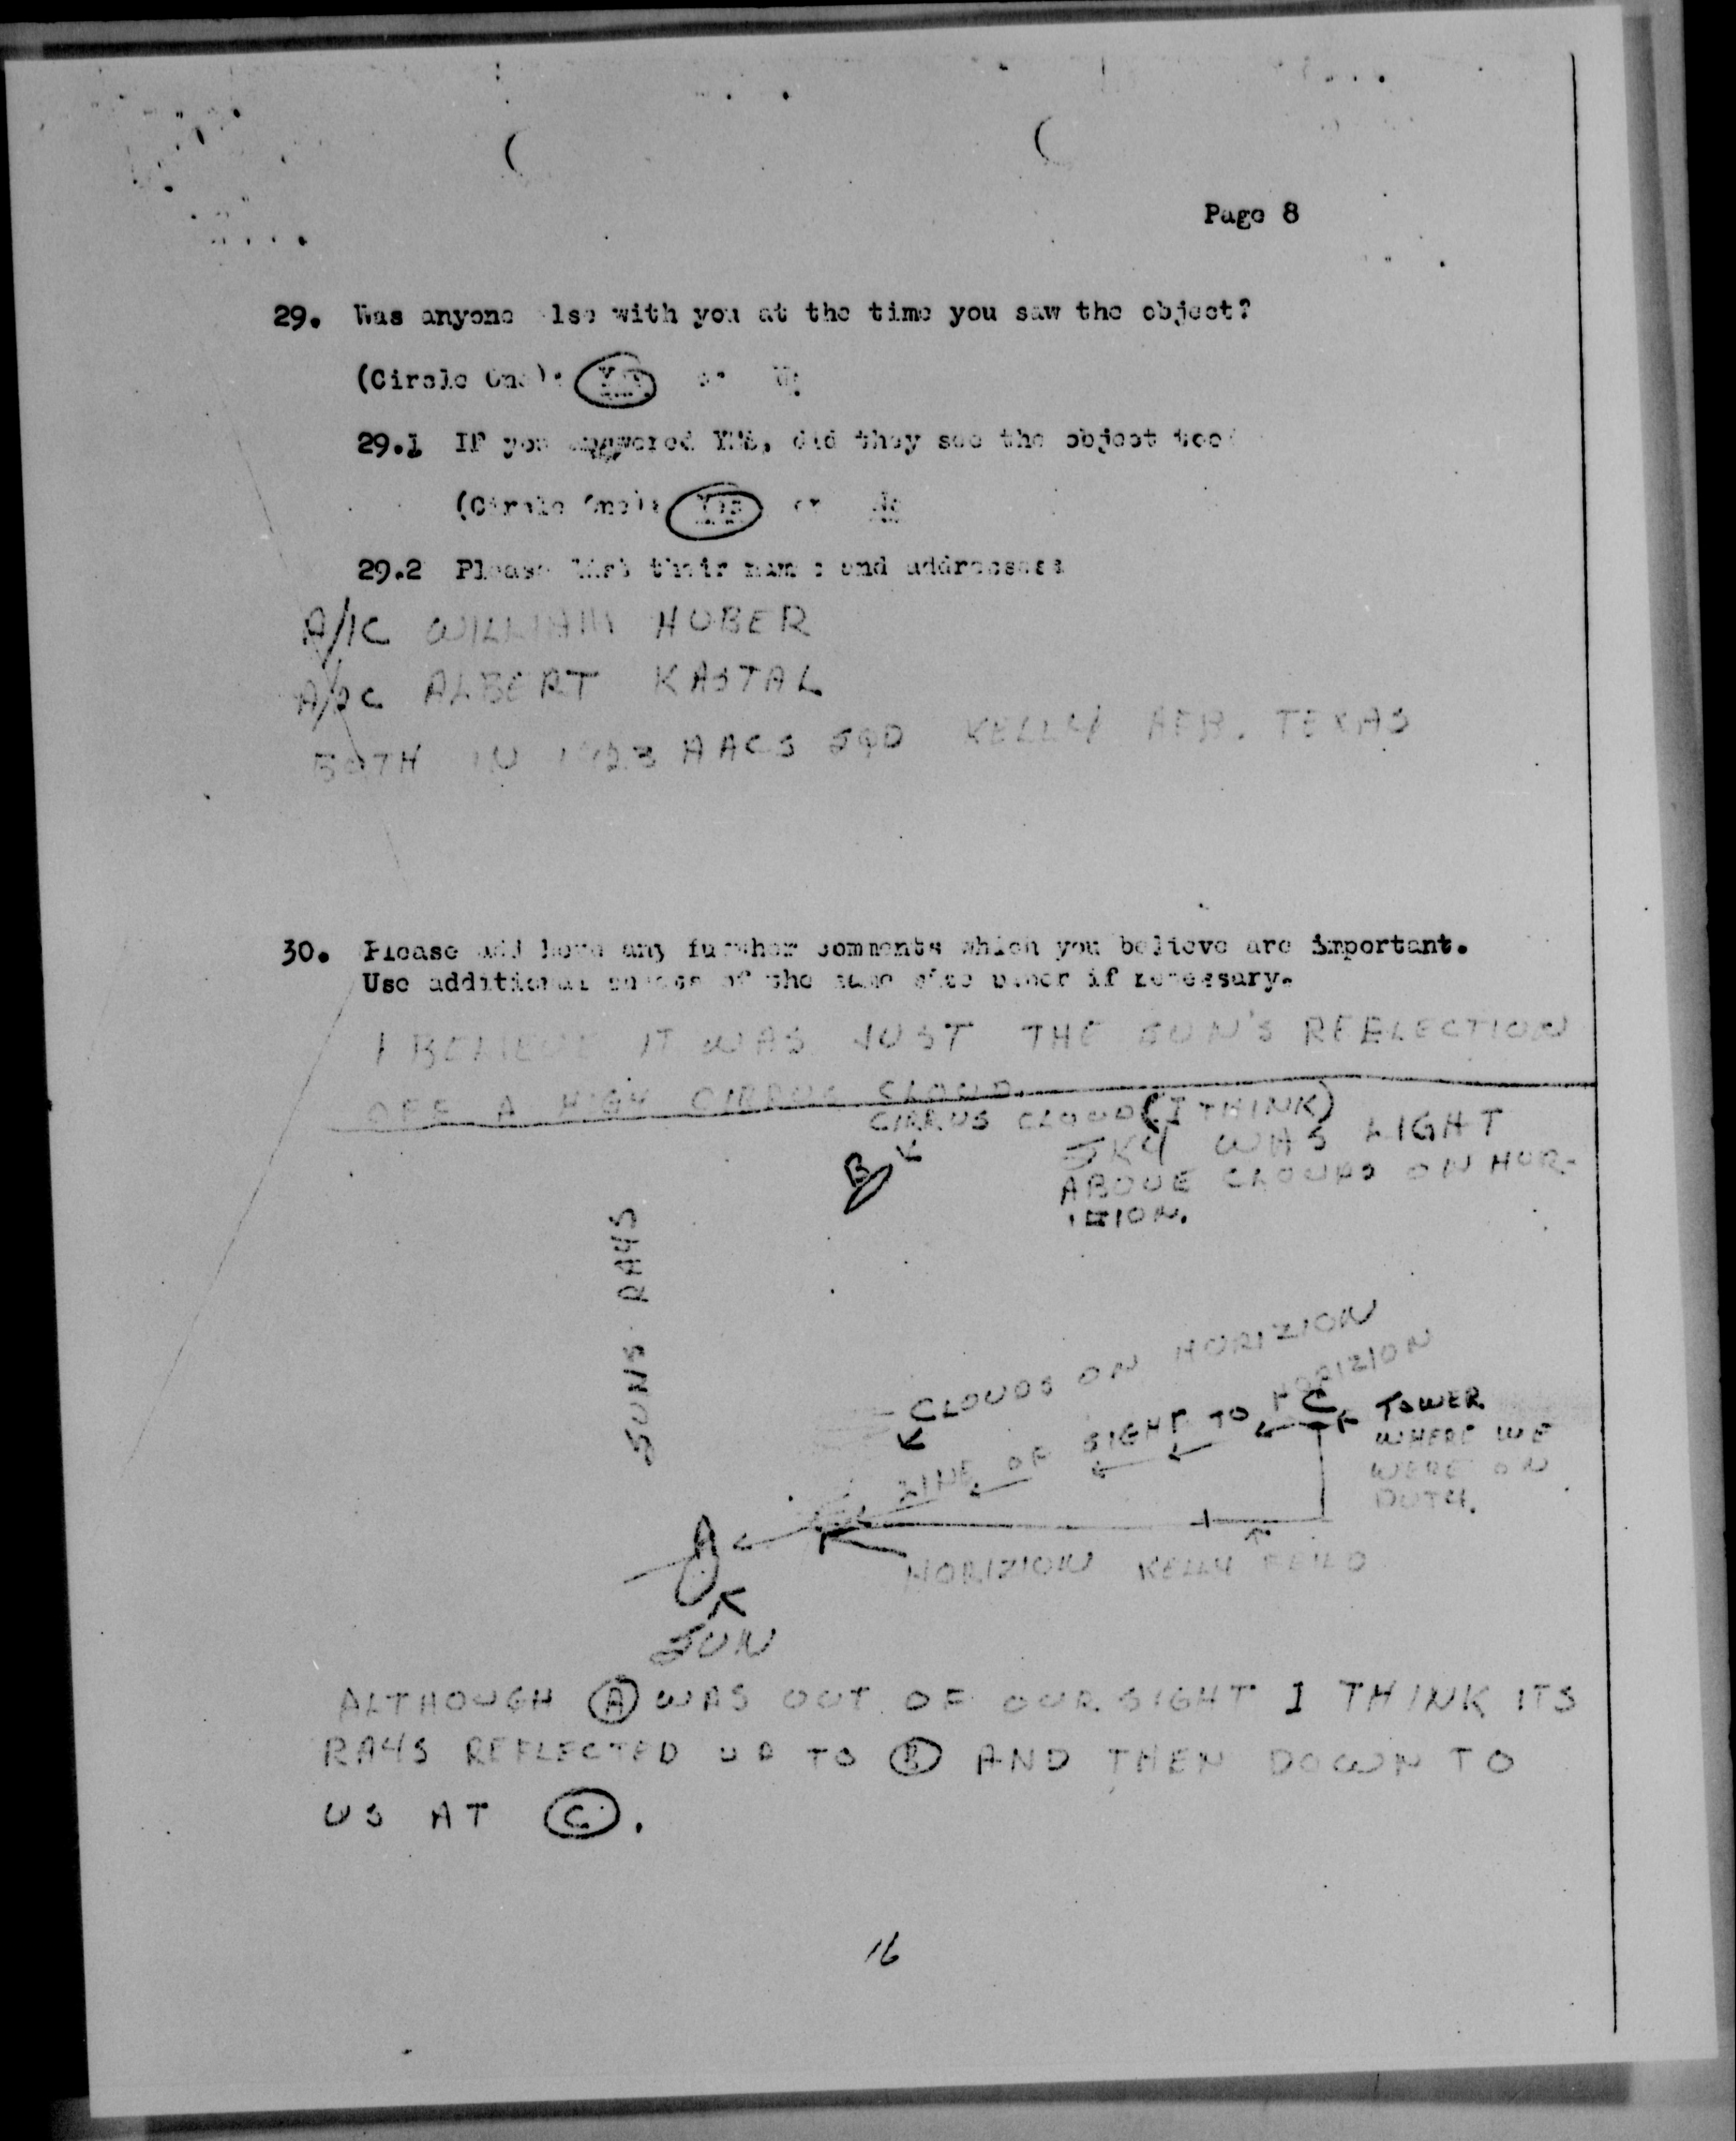 Page 8
29. Was anyone else with you at the time you saw the object?
(Circle One): Yes or No
29.1 IF you answered YES, did they see the object too?
(Circle One): Yes or No
29.2 Please list their names and addresses:
A/1C WILLIAM HUBER
A/2C ALBERT KASTAL
BOTH IN 1923 AACS SQD KELLY AFB. TEXAS
30. Please add here any further comments which you believe are important.
Use additional sheets of the same size paper if necessary.
I BELIEVE IT WAS JUST THE SUN'S REFLECTION
OFF A HIGH CIRRUS CLOUD.
CIRRUS CLOUD (I THINK)
B
SKY WAS LIGHT
ABOVE CLOUDS ON HOR-
IZION.
SUNS RAYS
CLOUDS ON HORIZION
LINE OF SIGHT TO HORIZION
C
TOWER
WHERE WE
WERE ON
DUTY.
A
HORIZION KELLY FEILD
SUN
ALTHOUGH A WAS OUT OF OUR SIGHT I THINK ITS
RAYS REFLECTED UP TO B AND THEN DOWN TO
US AT C.
16